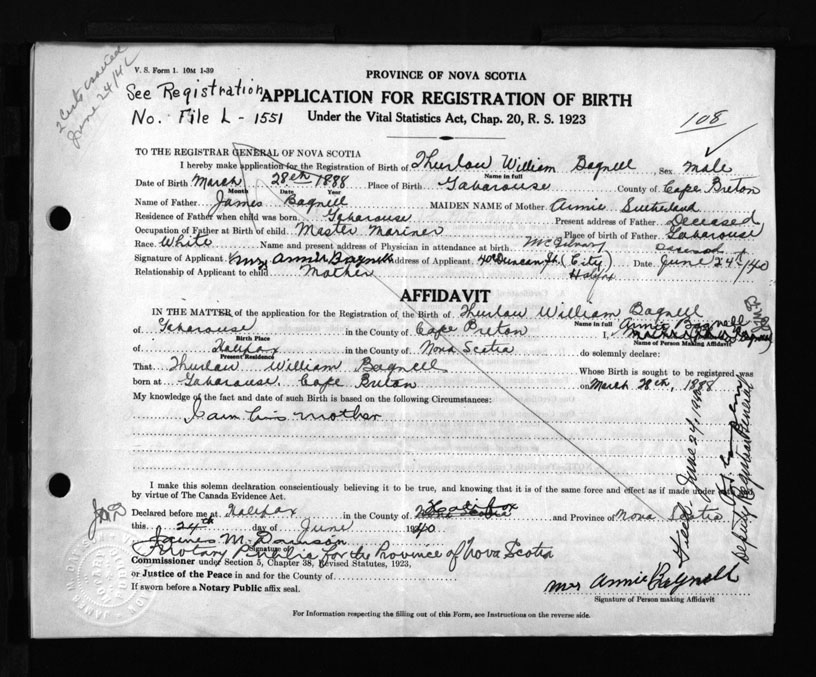 V. S. Form 1. 10M 1-39
June 24/42
PROVINCE OF NOVA SCOTIA
See Registration
APPLICATION FOR REGISTRATION OF BIRTH
No. File L - 1551
Under the Vital Statistics Act, Chap. 20, R. S. 1923
108
TO THE REGISTRAR GENERAL OF NOVA SCOTIA
I hereby make application for the Registration of Birth of Thurlow William Bagnell, Sex Male
Name in full
Date of Birth March 28th 1888 Place of Birth Gabarouse County of Cape Breton
Month Date Year
Name of Father James Bagnell MAIDEN NAME of Mother Annie Sutherland
Residence of Father when child was born Gabarouse Present address of Father Deceased
Occupation of Father at Birth of child Master Mariner Place of birth of Father Gabarouse
Race White Name and present address of Physician in attendance at birth
Signature of Applicant Mrs Annie Bagnell Address of Applicant 40 Duncan St. (City) Date June 24th/40
Relationship of Applicant to child Mother Halifax
AFFIDAVIT
IN THE MATTER of the application for Registration of the Birth of Thurlow William Bagnell
Name in full
of Gabarouse in the County of Cape Breton I, Annie Bagnell
Birth Place Name of Person Making Affidavit
of Halifax in the County of Nova Scotia do solemnly declare:
Present Residence
That Thurlow William Bagnell Whose Birth is sought to be registered was
born at Gabarouse Cape Breton on March 28th, 1888
My knowledge of the fact and date of such Birth is based on the following Circumstances:
I am his mother
I make this solemn declaration conscientiously believing it to be true, and knowing that it is of the same force and effect as if made under oath by virtue of The Canada Evidence Act.
Declared before me at Halifax in the County of Halifax Nova Scotia and Province of Nova Scotia
this 24th day of June 1940
James M. Davison
Signature of
A Notary Public for the Province of Nova Scotia
Commissioner under Section 5, Chapter 38, Revised Statutes, 1923,
or Justice of the Peace in and for the County of
If sworn before a Notary Public affix seal.
Mrs Annie Bagnell
Signature of Person making Affidavit
For Information respecting the filling out of this Form, see Instructions on the reverse side.
Filed June 24, 1940
Deputy Registrar General